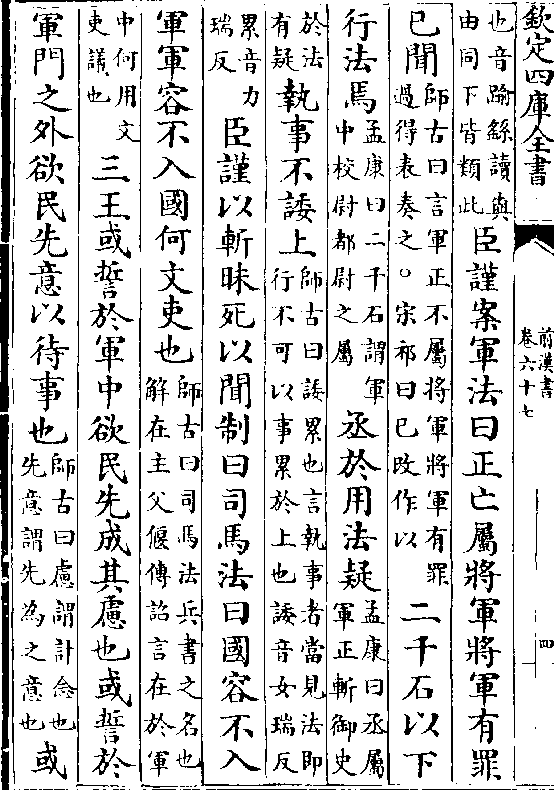 欽定四庫全書
前漢書
卷六十七
四
也音踰繇讀與
由同下皆類此
臣謹案軍法曰正亡屬將軍將軍有罪
已聞
師古曰言軍正不屬將軍將軍有罪
過得表奏之○宋祁曰已改作以
二千石以下
行法焉
孟康曰二千石謂軍
中校尉都尉之屬
丞於用法疑
孟康曰丞屬
軍正斬御史
於法
有疑
執事不諉上
師古曰諉累也言執事者當見法即
行不可以事累於上也諉音女瑞反
累音力
瑞反
臣謹以斬昧死以聞制曰司馬法曰國容不入
軍軍容不入國何文吏也
師古曰司馬法兵書之名也
解在主父偃傳詔言在於軍
中何用文
吏議也
三王或誓於軍中欲民先成其慮也或誓於
軍門之外欲民先意以待事也
師古曰慮謂計念也
先意謂先為之意也
或